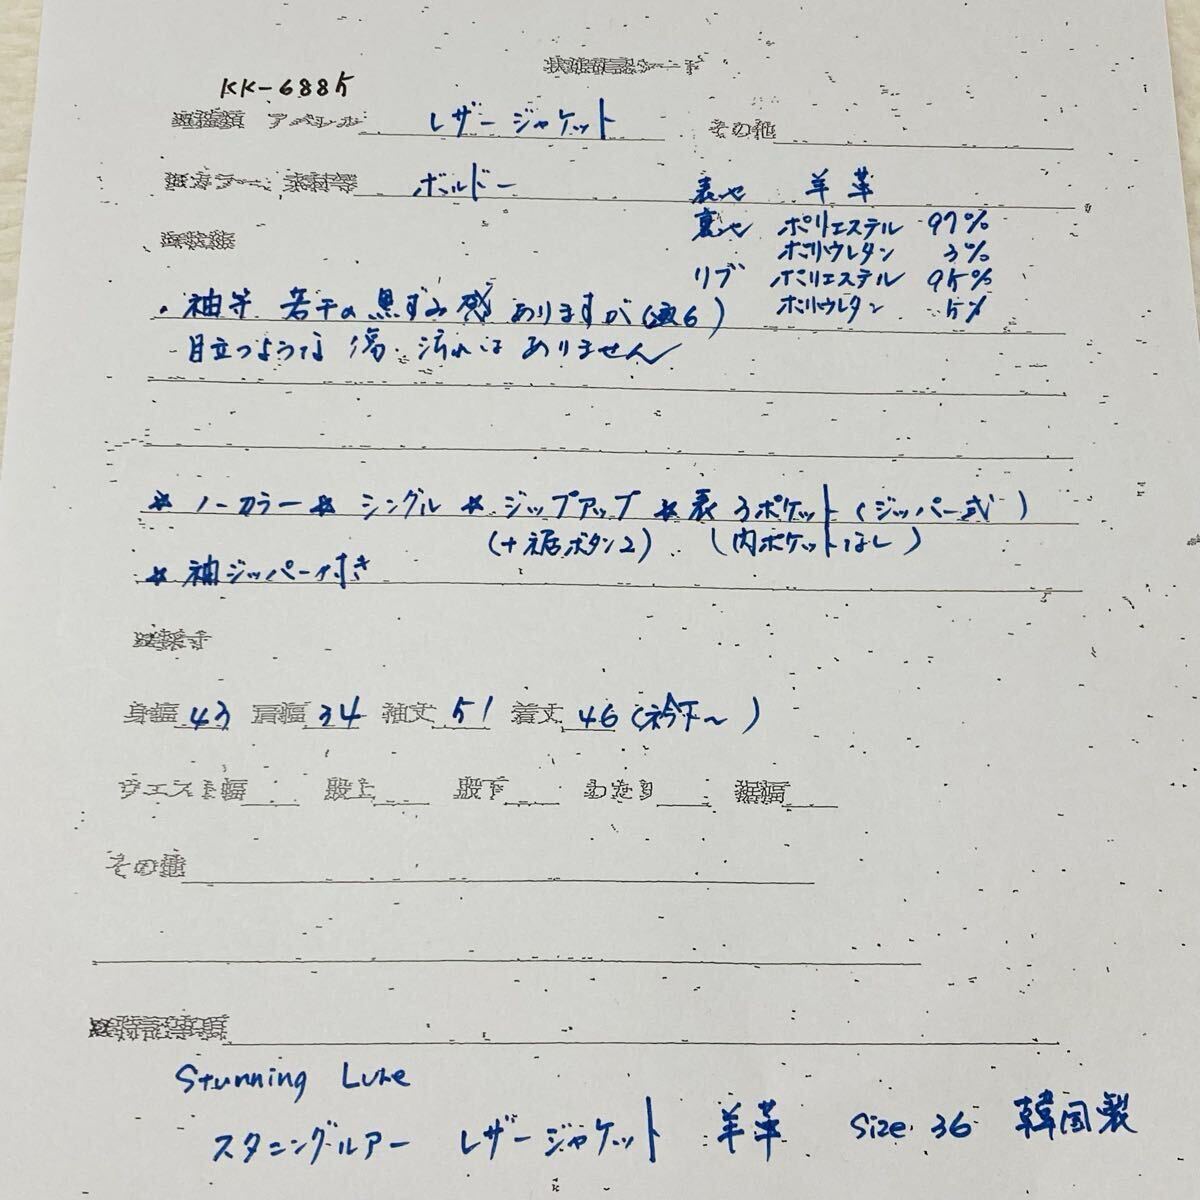 状態確認シート
KK-6885
アパレル レザージャケット その他
カラー、素材等 ボルドー 表地 羊革
裏地 ポリエステル 97%
ポリウレタン 3%
リブ ポリエステル 95%
ポリウレタン 5%
・袖等、若干の黒ずみ感ありますが(画6)
目立つような傷、汚れはありません
☆ノーカラー☆シングル☆ジップアップ☆表3ポケット(ジッパー式)
(+裾ボタン2)(内ポケットはし)
☆袖ジッパー付き
身幅 43 肩幅 34 袖丈 51 着丈 46(衿下〜)
ウエスト幅 股上 股下 わたり 裾幅
その他
特記事項
Stunning Lure
スタニングルアー レザージャケット 羊革 size 36 韓国製